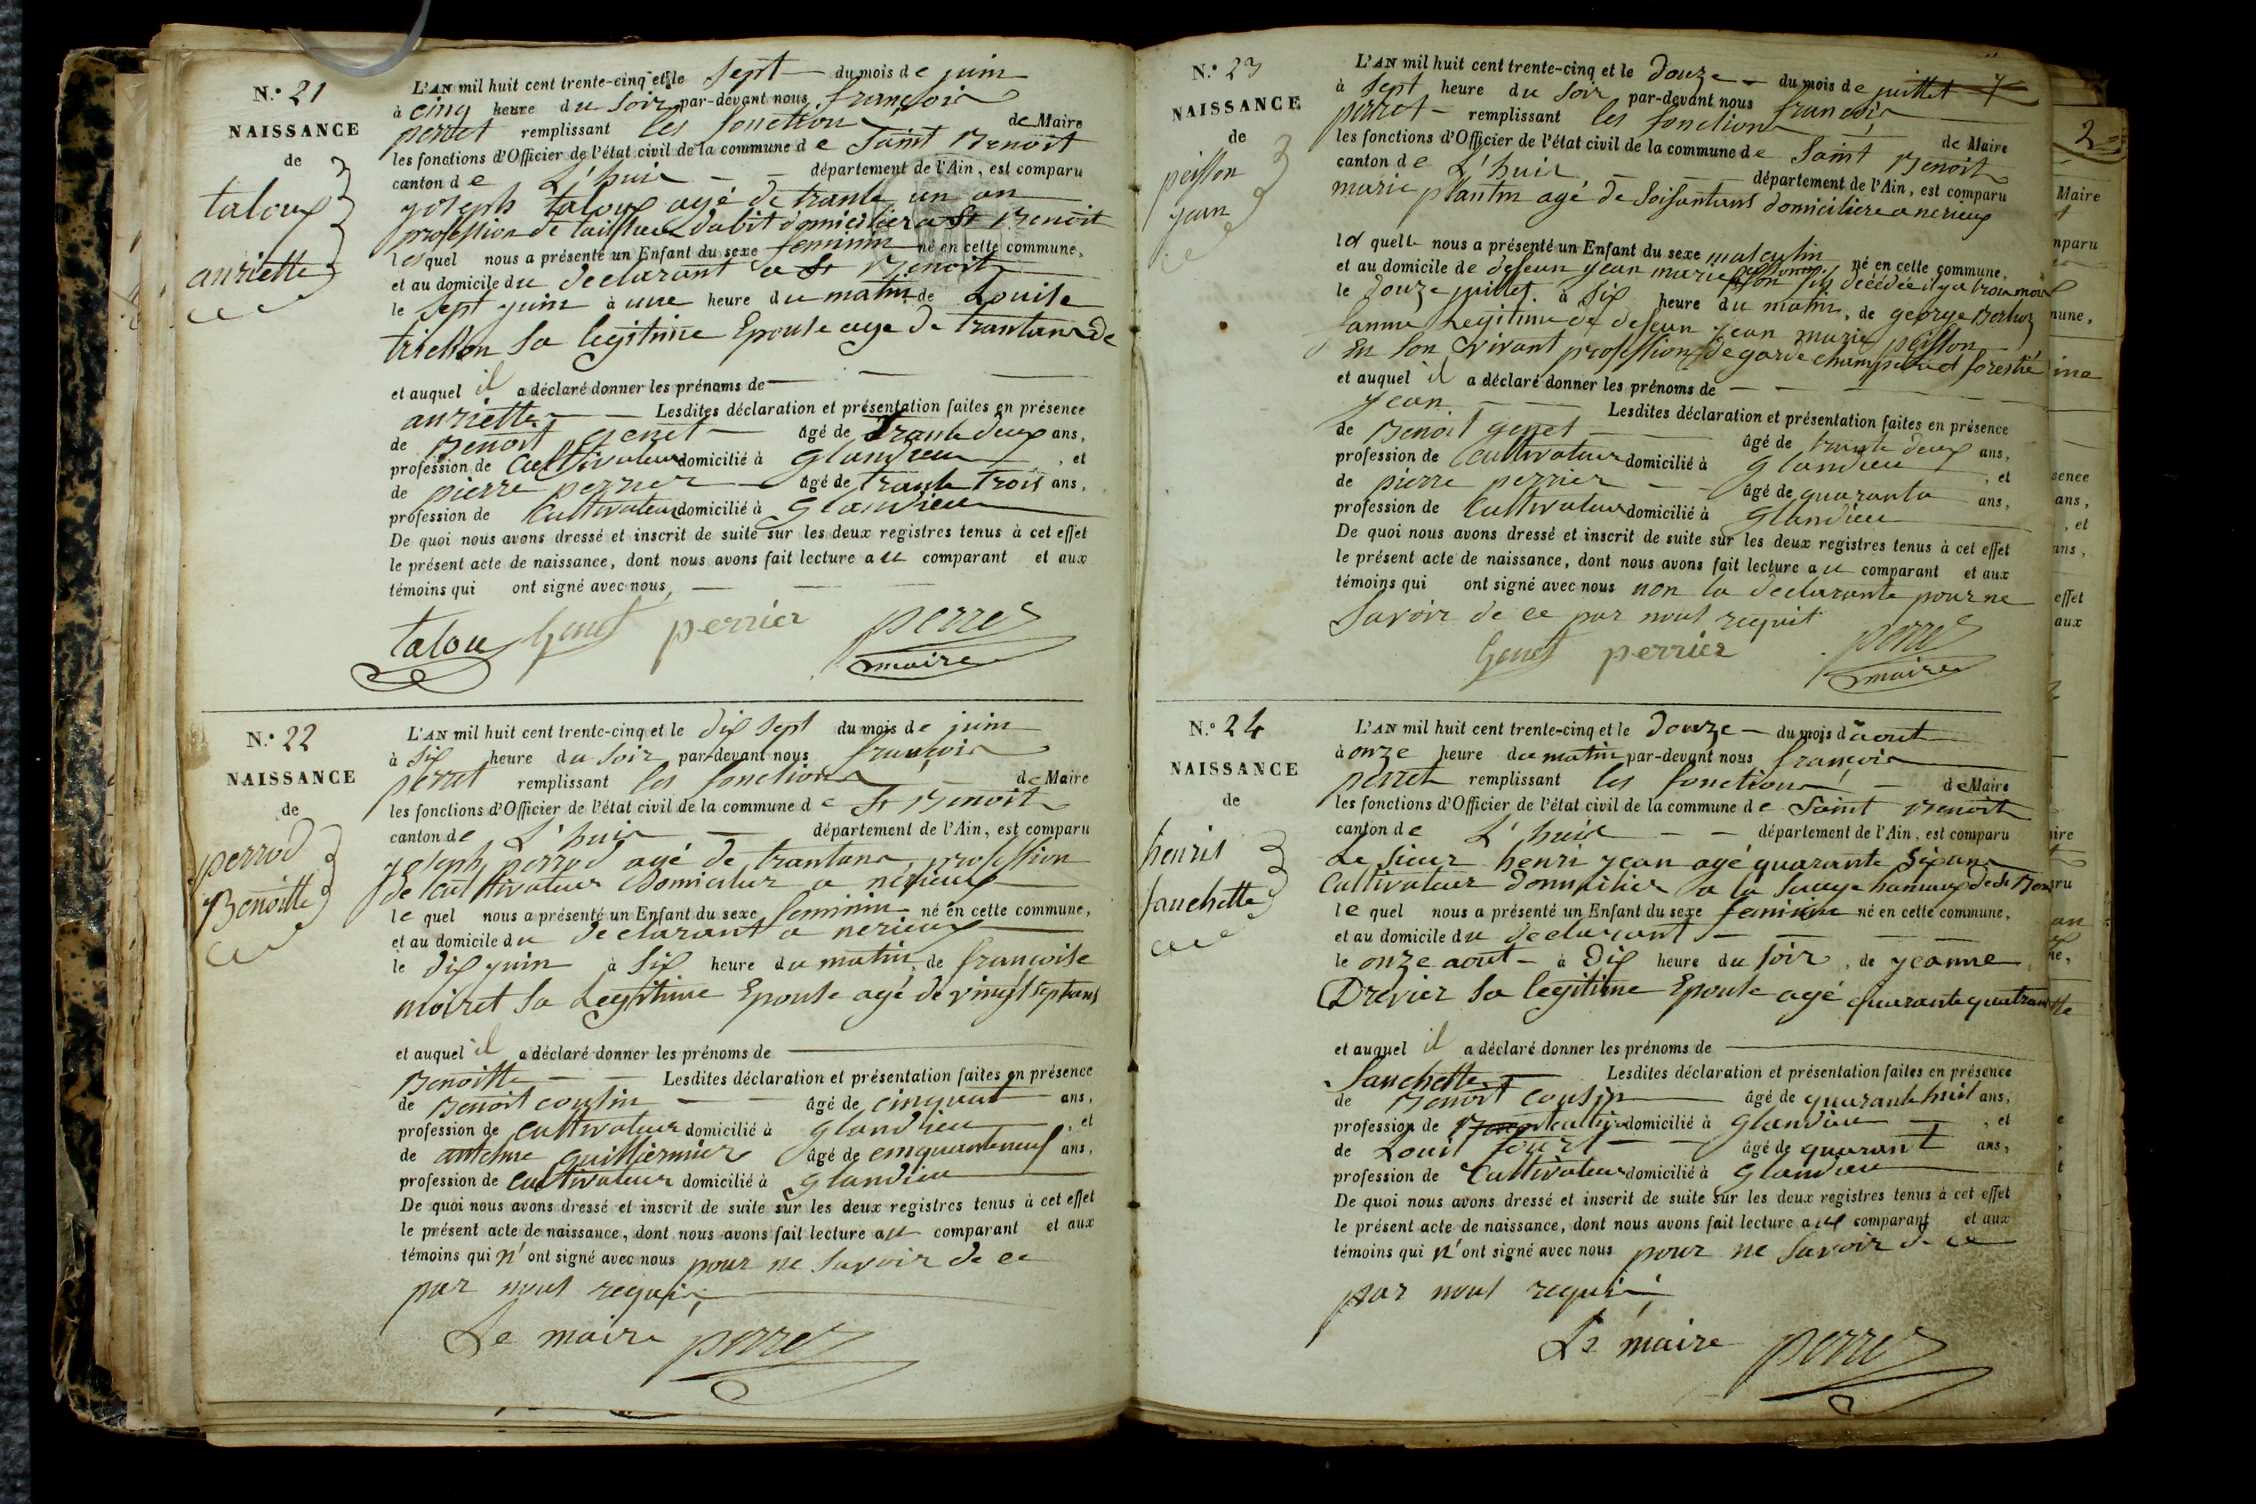 N.° 21
NAISSANCE
de
taloux
auriette
L'AN mil huit cent trente-cinq et le sept du mois de juin
à cinq heure du soir par-devant nous françois
perret remplissant les fonction de Maire
les fonctions d'Officier de l'état civil de la commune de Saint Benoit
canton de L'huis département de l'Ain, est comparu
joseph taloux agé de trante un an
profession de tailleur dabit domicilier a St Benoit
lequel nous a présenté un Enfant du sexe feminin né en cette commune,
et au domicile du declarant a St Benoit
le sept juin à une heure du matin de Louise
trichon sa legitime Epouse age de trantans
et auquel il a déclaré donner les prénoms de
auriette Lesdites déclaration et présentation faites en présence
de Benoit genet âgé de trante deux ans,
profession de Cultivateur domicilié à glandieu, et
de pierre perrier âgé de trante trois ans,
profession de Cultivateur domicilié à glandieu
De quoi nous avons dressé et inscrit de suite sur les deux registres tenus à cet effet
le présent acte de naissance, dont nous avons fait lecture au comparant et aux
témoins qui ont signé avec nous,
talou Genet perrier perret
maire
N.° 22
NAISSANCE
de
perrod
Benoitte
L'AN mil huit cent trente-cinq et le dix sept du mois de juin
à six heure du soir par-devant nous françois
perret remplissant les fonctions de Maire
les fonctions d'Officier de l'état civil de la commune de St Benoit
canton de L'huis département de l'Ain, est comparu
joseph perrod agé de trantans, profession
de Cultivateur Domicilier a nerieux
lequel nous a présenté un Enfant du sexe feminin né en cette commune,
et au domicile du declarant a nerieux
le dix juin à six heure du matin, de françoise
moiret sa Legitime Epouse agé de vingt sept ans
et auquel il a déclaré donner les prénoms de
Benoitte Lesdites déclaration et présentation faites en présence
de Benoit cousin âgé de cinquant ans,
profession de cultivateur domicilié à glandieu, et
de antelme guillermier âgé de cinquanteneuf ans,
profession de cultivateur domicilié à glandieu
De quoi nous avons dressé et inscrit de suite sur les deux registres tenus à cet effet
le présent acte de naissance, dont nous avons fait lecture au comparant et aux
témoins qui n'ont signé avec nous pour ne savoir de ce
par nous requis
Le maire perret
N.° 23
NAISSANCE
de
peisson
jean
L'AN mil huit cent trente-cinq et le douze du mois de juillet
à sept heure du soir par-devant nous françois
perret remplissant les fonctions de Maire
les fonctions d'Officier de l'état civil de la commune de Saint Benoit
canton de L'huis département de l'Ain, est comparu
marie plantin agé de soisantans domiciliere a nerieux
laquelle nous a présenté un Enfant du sexe masculin né en cette commune,
et au domicile de defeun jean marie décédée il y a trois mois
le douze juillet à six heure du matin, de george
famme Legitime de defeun jean marie peisson
En son vivant profession de garde champetre et forestié
et auquel il a déclaré donner les prénoms de
jean Lesdites déclaration et présentation faites en présence
de Benoit genet âgé de trante deux ans,
profession de Cultivateur domicilié à glandieu, et
de pierre perrier âgé de quaranta ans,
profession de Cultivateur domicilié à glandieu
De quoi nous avons dressé et inscrit de suite sur les deux registres tenus à cet effet
le présent acte de naissance, dont nous avons fait lecture au comparant et aux
témoins qui ont signé avec nous non la declarante pour ne
savoir de ce par nous requit
Genet perrier perret
maire
N.° 24
NAISSANCE
de
henrit
fanchette
L'AN mil huit cent trente-cinq et le douze du mois d'aout
à onze heure du matin par-devant nous françois
perret remplissant les fonctions de Maire
les fonctions d'Officier de l'état civil de la commune de Saint Benoit
canton de L'huis département de l'Ain, est comparu
Le sieur henri jean agé quarante six ans
Cultivateur domicilier a la hamaux de St
lequel nous a présenté un Enfant du sexe feminin né en cette commune,
et au domicile du declarant
le onze aout à dix heure du soir, de jeanne
Drevier sa legitime Epouse agé quarante quatrans
et auquel il a déclaré donner les prénoms de
fanchette Lesdites déclaration et présentation faites en présence
de Benoit cousin âgé de quarante huit ans,
profession de domicilié à glandieu, et
de Louis âgé de quarant ans,
profession de Cultivateur domicilié à glandieu
De quoi nous avons dressé et inscrit de suite sur les deux registres tenus à cet effet
le présent acte de naissance, dont nous avons fait lecture au comparant et aux
témoins qui n'ont signé avec nous pour ne savoir de ce
par nous requis
Le maire perret